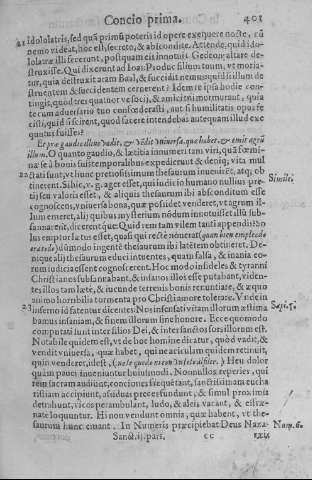 Concio prima. 401
21 Idololatris, sed quà primùm poteris id opere exequere nocte, cū
nemo videat, hoc est, secretò, & absconditè. Attende, quid ido-
lolatræ illi fecerunt, postquam eis innotuit Gedeon altare de-
struxisse. Qui dixerunt ad Ioas: Produc filium tuum, vt moria-
tur, quia destruxit aram Baal, & succidit nemus: quid si illum de-
struentem & succidentem cernerent? Idem te ipso hodie con-
tingit, quòd tres quatuor ve socij, & amici tui mormurant, quia
te cum aduersario tuo confœderasti, aut si humilitatis opus fe-
cisti, quid si scirent, quod facere intendebas antequam illud exe-
quutus fuisses?
Et præ gaudio illius vadit, & vēdit vniuersa, quæ habet, & emit agrū
illum. O quanto gaudio, & lætitia innumeri tam viri, quā fœmi-
næ se à bonis suis temporalibus expedierunt & denique, vita mul
22 ctati sunt, vt hunc pretiosissimum thesaurum inuenirēt, atq; ob
tinerent. Sibi, v. g. ager esset, qui iudicio humano nullius pre- Simile.
tij seu valoris esset, & aliquis thesaurum ibi absconditum esse
cognoscens, vniuersa bona, quæ possidet venderet, vt agrum il-
lum emeret, alij quibus mysterium nōdum innotuisset allū sub-
sannarent, dicerentque: Quid rem tam vilem tanti appendit? So-
lus emptor lætus esset, quasi qui rectè nouerat
dummodo ingentē thesaurum ibi latētem obtineret. De-
nique alij thesaurum educi intuentes, quam falsa, & inania eo-
rum iudicia essent cognoscerent. Hoc modo infideles & tyranni
Christianos subsannabant, & insanos illos esse putabant, viden-
tes illos tam læte, & iucunde terrenis bonis renuntiare, & æquo
animo horribilia tormenta pro Christi amore tolerare. Vnde in
23 inferno id fatentur dicentes: Nos insensati vitam illorum æstima Sapi. 5.
bamus insaniam, & finem illorum sine honore. Ecce quomodo
computati sunt inter filios Dei, & inter sanctos sors illorum est.
Notabile quidem est, vt de hoc homine dicatur, quòd vadit, &
vendit vniuersa, quæ habet, qui ne aciculam quidem retinuit,
quin venderet, id est Heu dolor
quàm pauci inueniantur huiusmodi. Nonnullos reperies, qui
rem sacram audiunt, conciones frequētant, sanctissimam eucha
ristiam accipiunt, assiduas preces fundunt, & simul proximis
detrahunt, vicos perambulant, ludo, & aleis vacant, & effræ-
nate loquuntur. Hi non vendunt omnia, quæ habent, vt the-
saurum hunc emant. In Numeris præcipiebat Deus Naza- Num. 6.
Sanct. ij. pars. cc